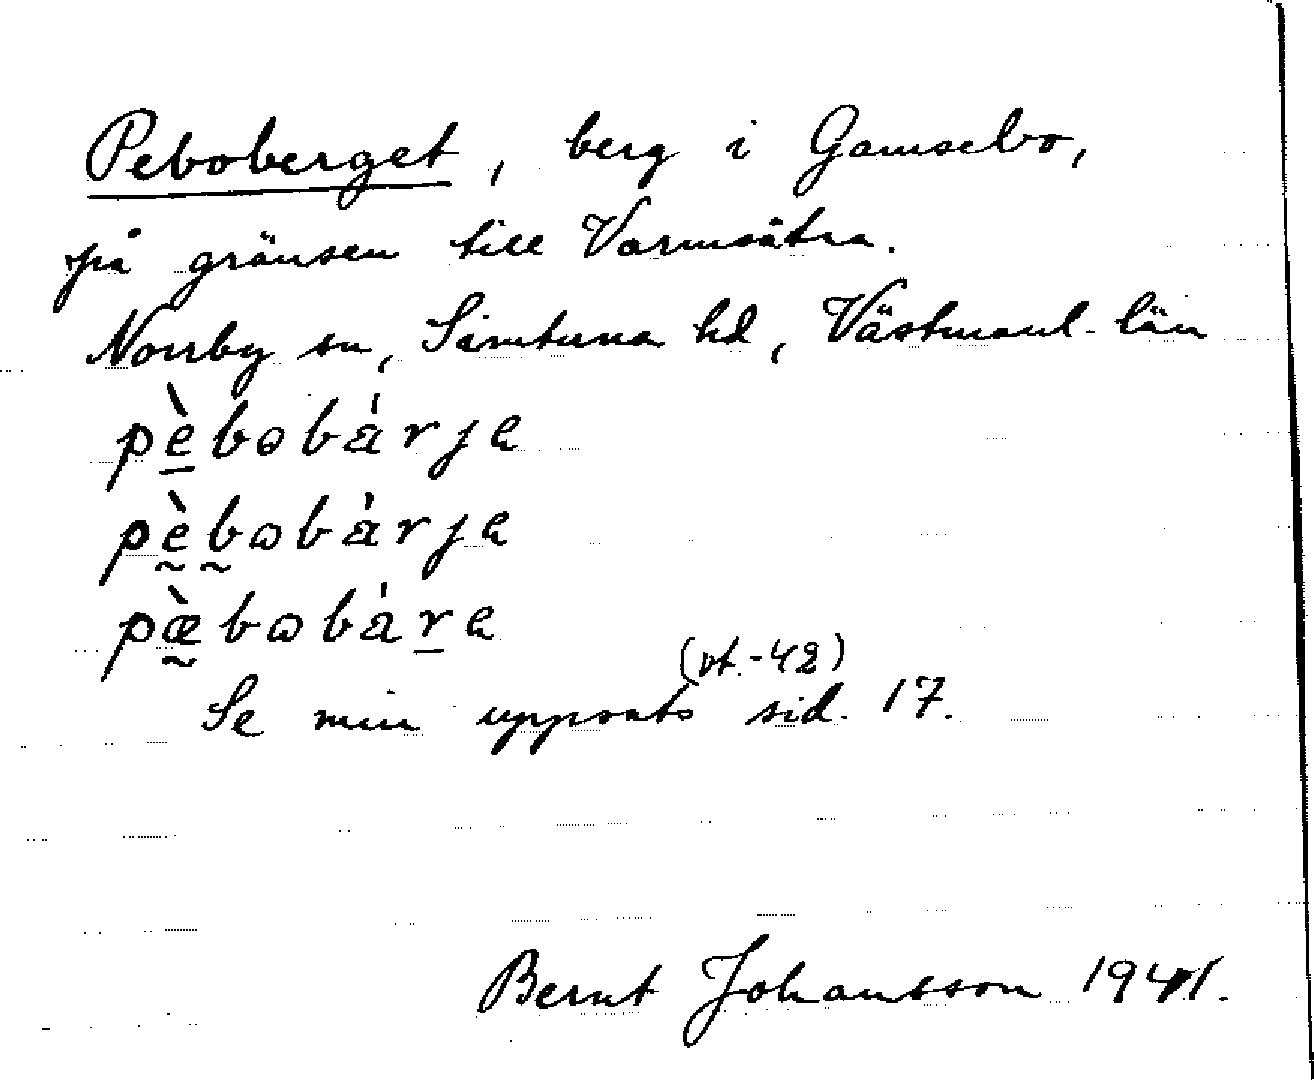 Peboberget, berg i Gamsebo,
på gränsen till Varmsätra.
Norrby sn, Simtuna hd, Västmanl. län
pèbobárjе
pèbɷbárjе
pæ̀bɷbárе
(vt.-42)
Se min uppsats sid. 17.
Bernt Johansson 1941.